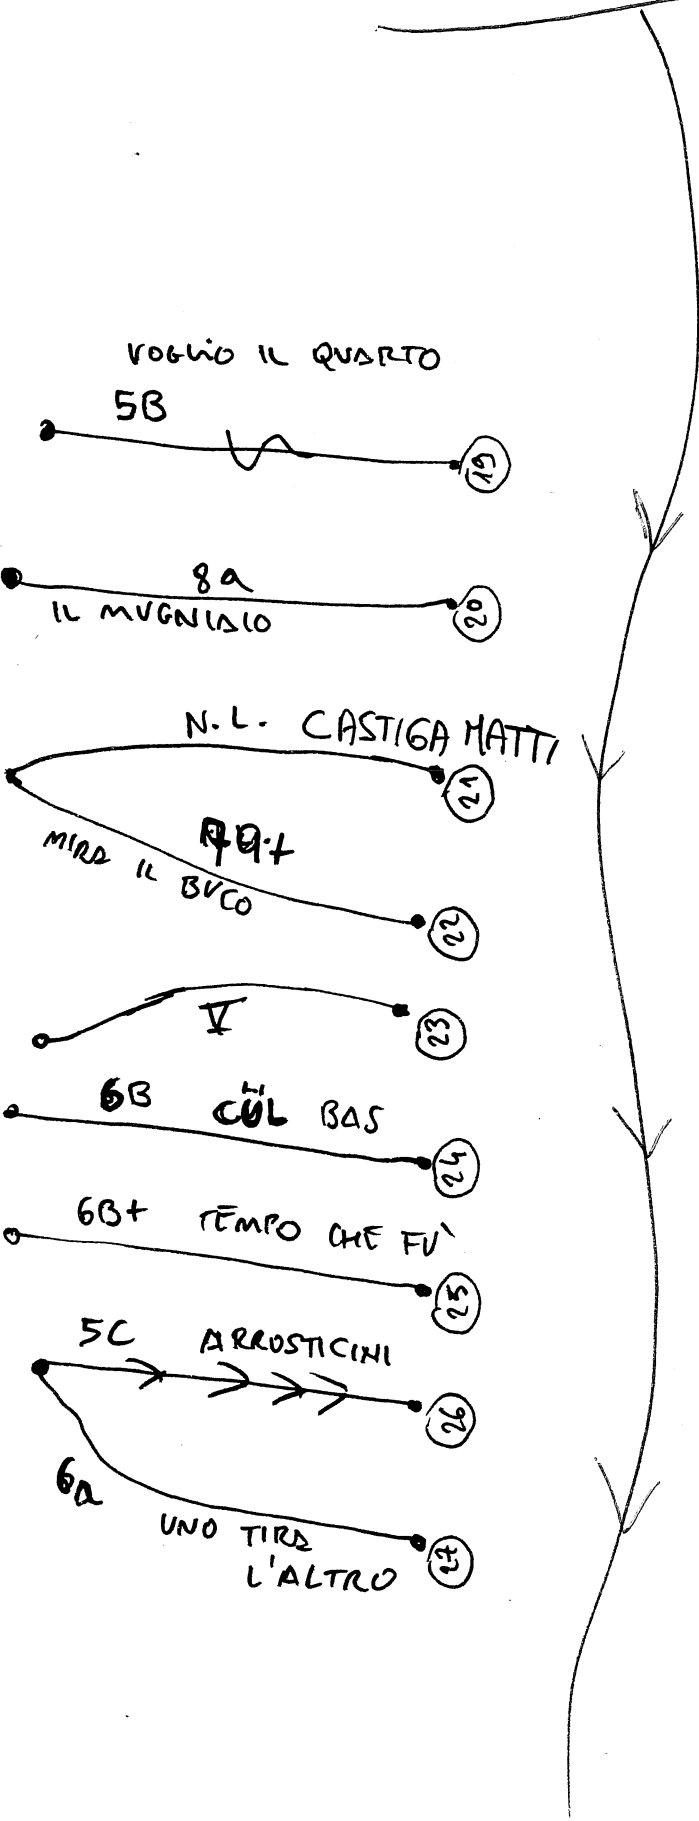 VOGLIO IL QUARTO
5B
19
8a
IL MUGNIAIO
20
N.L. CASTIGA MATTI
21
7a+
MIRA IL BUCO
22
V
23
6B CÜL BAS
24
6B+ TEMPO CHE FU`
25
5C ARROSTICINI
26
6a
UNO TIRA
L'ALTRO
27